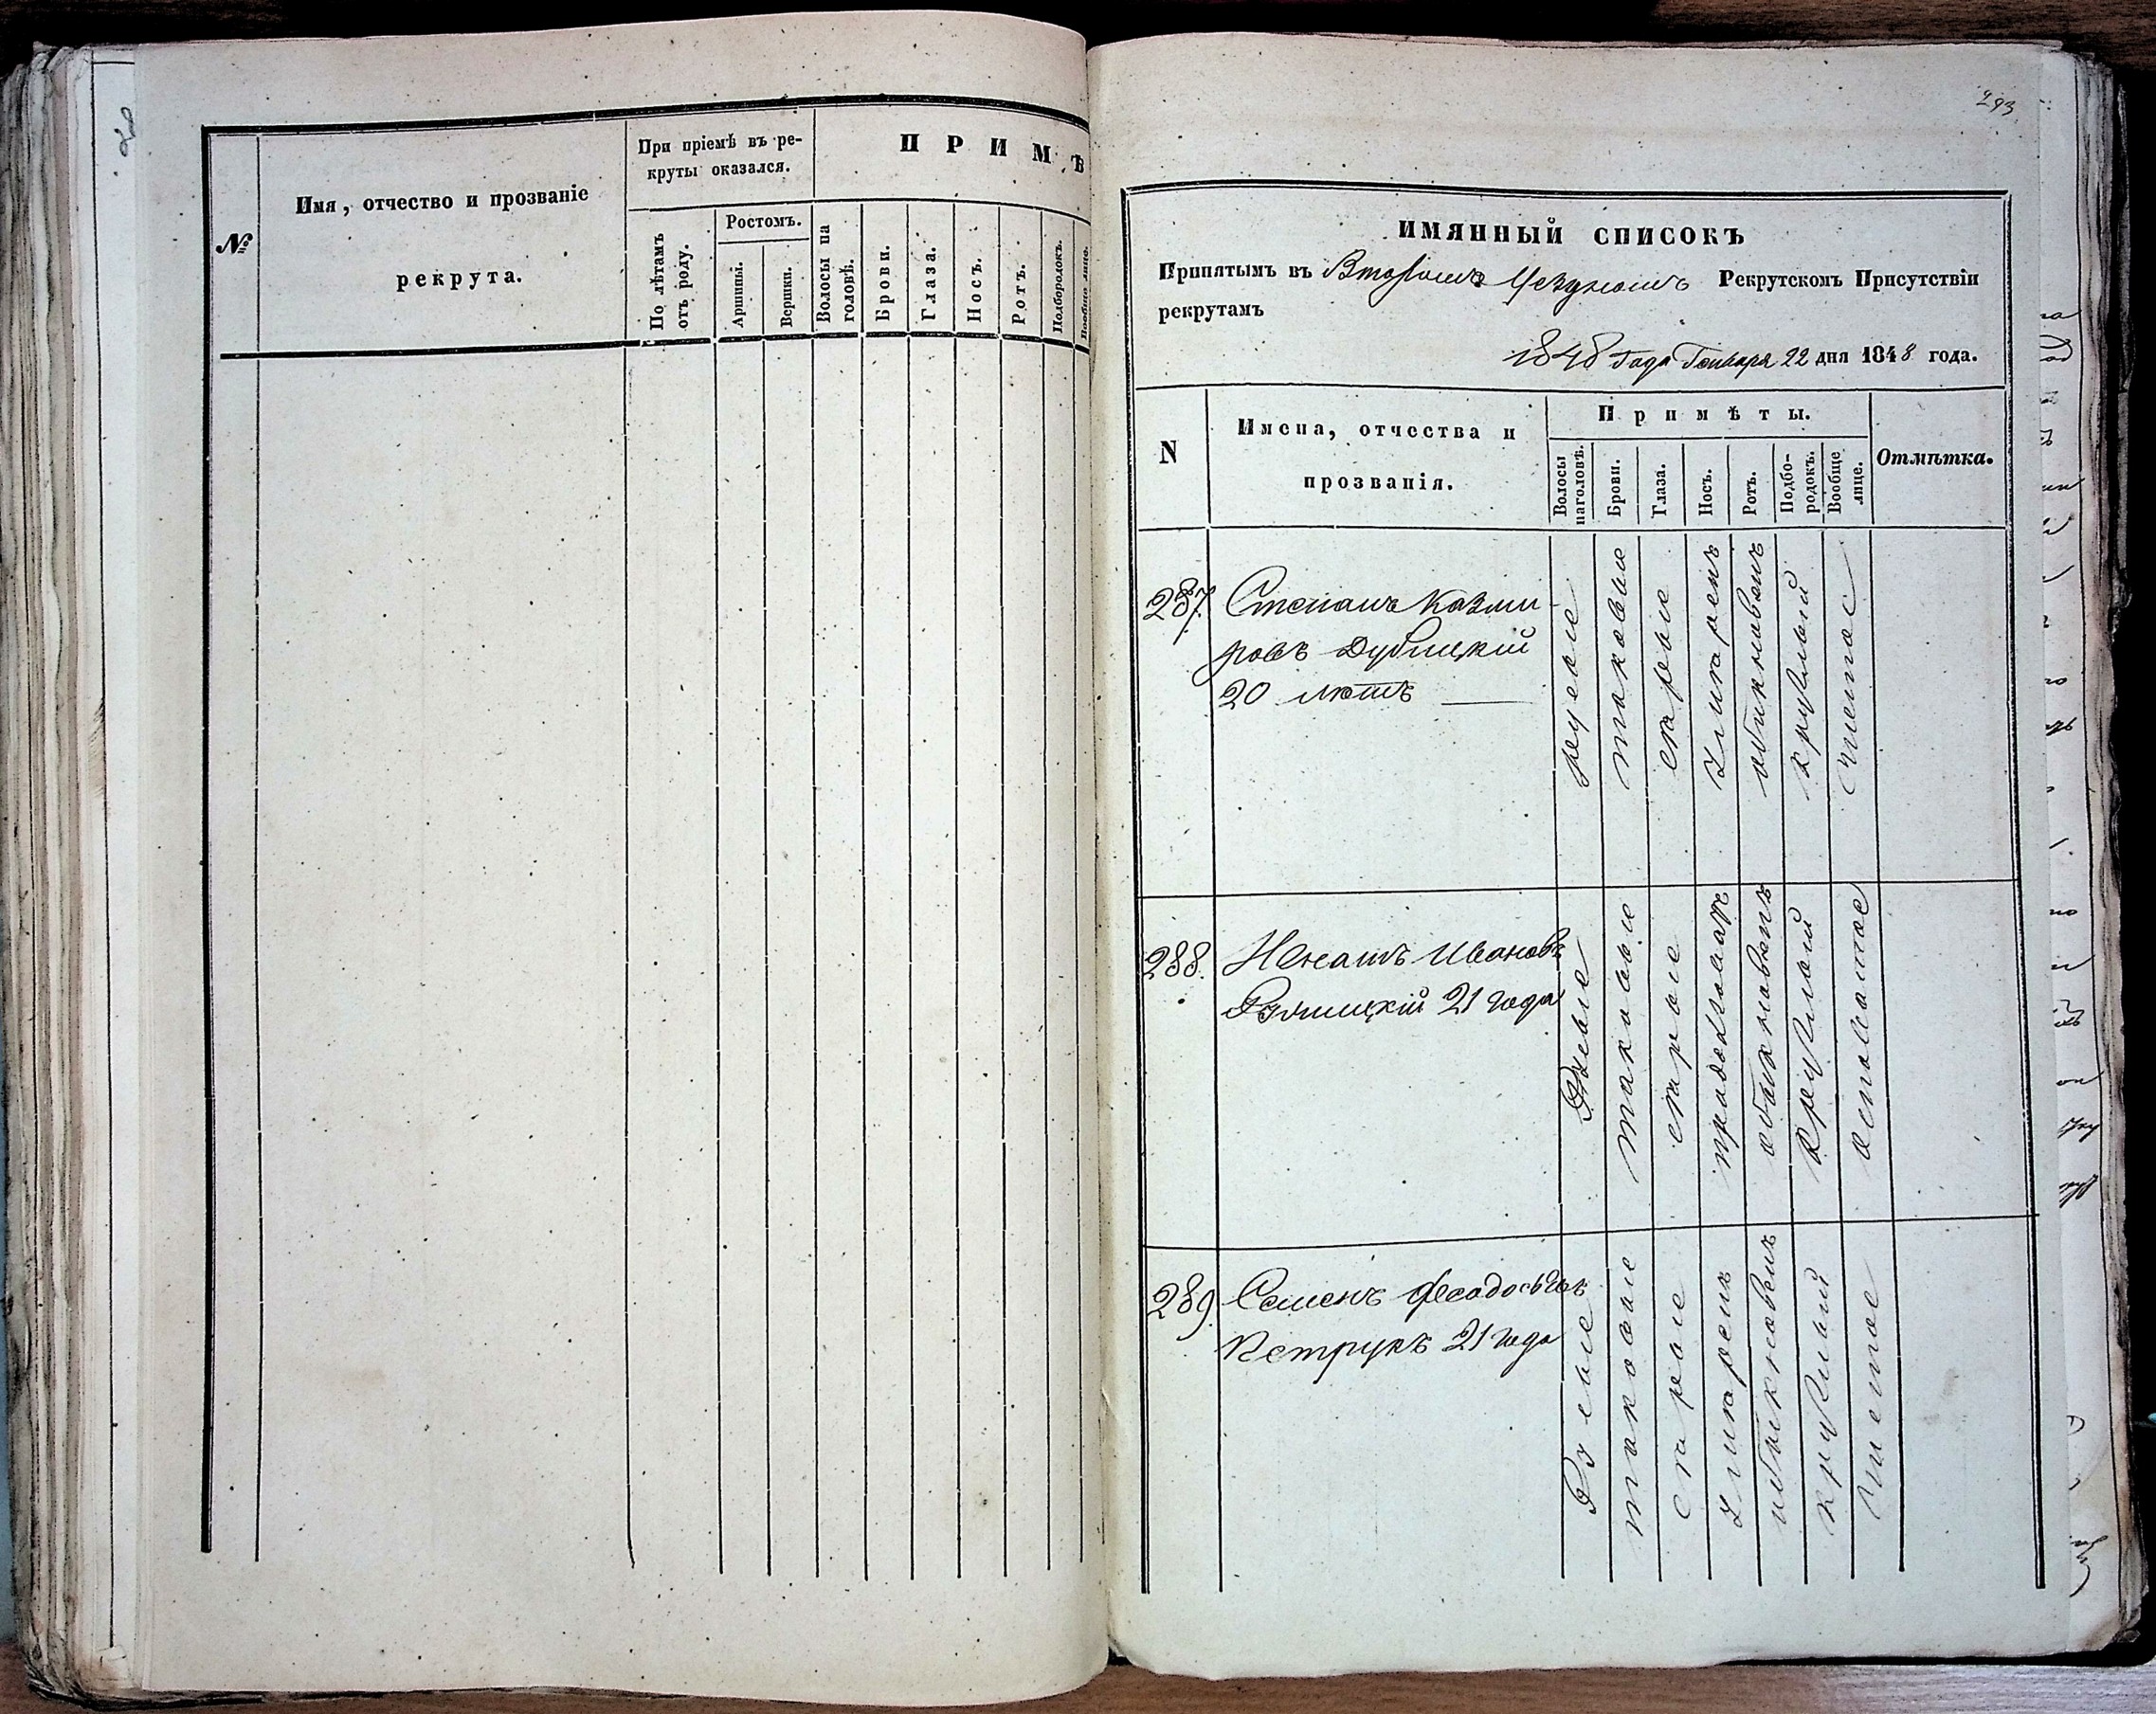 №
Имя, отчество и прозваніе
рекрута.
При пріемѣ въ ре-
круты оказался.
По лѣтамъ
отъ роду.
Ростомъ.
Аршины.
Вершки.
П Р И М Ѣ
Волосы на
головѣ.
Брови.
Глаза.
Носъ.
Ротъ.
Подбородокъ.
Вообще лице.
293
ИМЯННЫЙ СПИСОКЪ
Принятымъ въ Второмъ Уѣзномъ Рекрутскомъ Присутствіи
рекрутамъ
1848 Года Генваря 22 дня 1848 года.
N
Имена, отчества и
прозванія.
Примѣты.
Волосы
наголовѣ.
Брови.
Глаза.
Носъ.
Ротъ.
Подбо-
родокъ.
Вообще
лице.
Отмѣтка.
287
Степанъ Казми-
ровъ Дубицкій
20 лѣтъ
русые
таковые
серые
умѣрен
обикновенъ
круглый
чистое
288.
Иванов
21 года
таковые
серые
обыкновенъ
круглый
289
Семенъ Феодосьев
Петрукъ 21 года
Русые
таковые
серые
умѣрен
обыкновен
круглый
Чистое